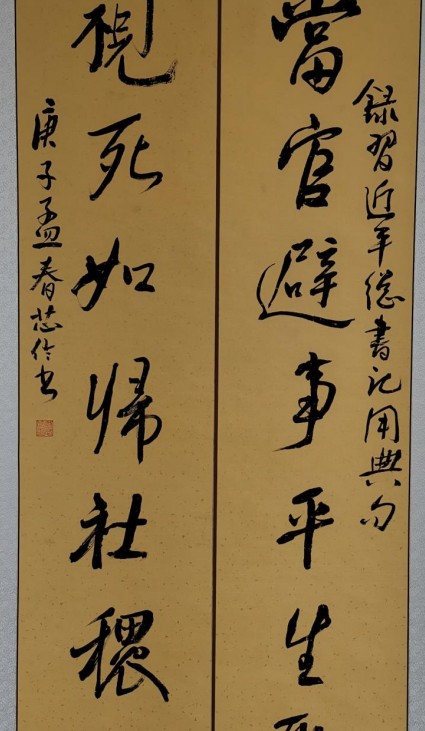 錄習近平總書記用典句
當官避事平生
視死如歸社稷
庚子孟春書